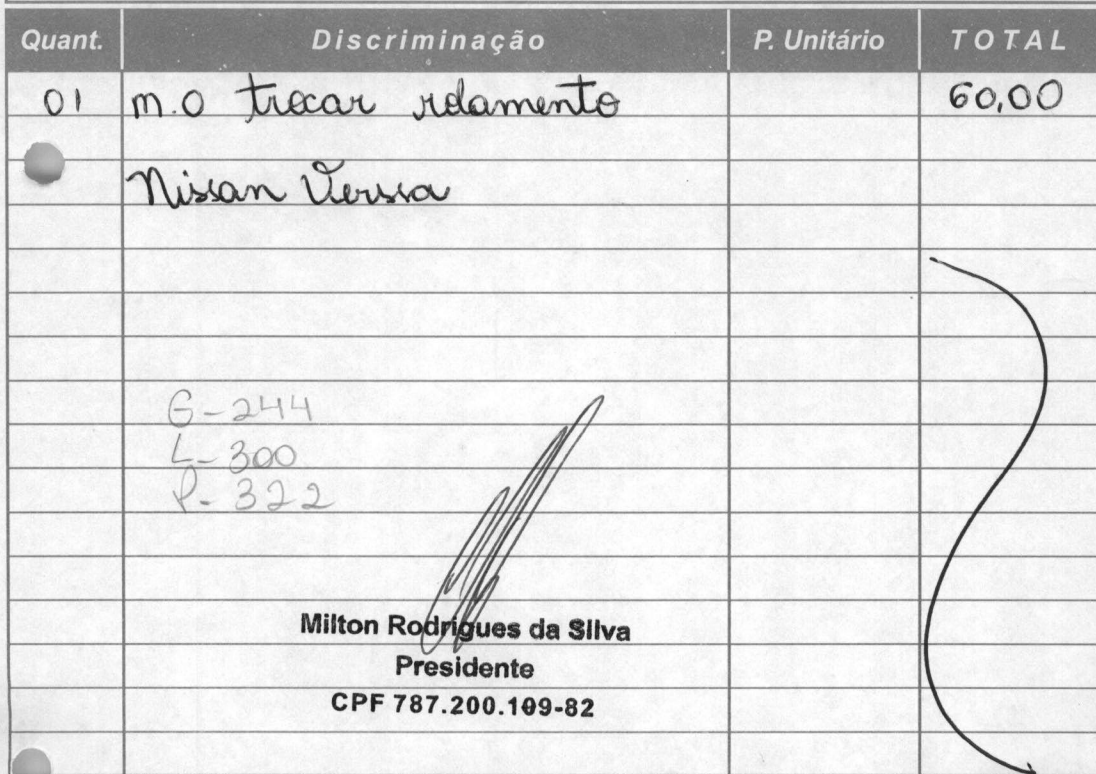 Quant. Discriminação P. Unitário TOTAL
01 m.o trocar rolamento 60,00
Nissan Verssa
G-244
L-300
P-322
Milton Rodrigues da Silva
Presidente
CPF 787.200.109-82